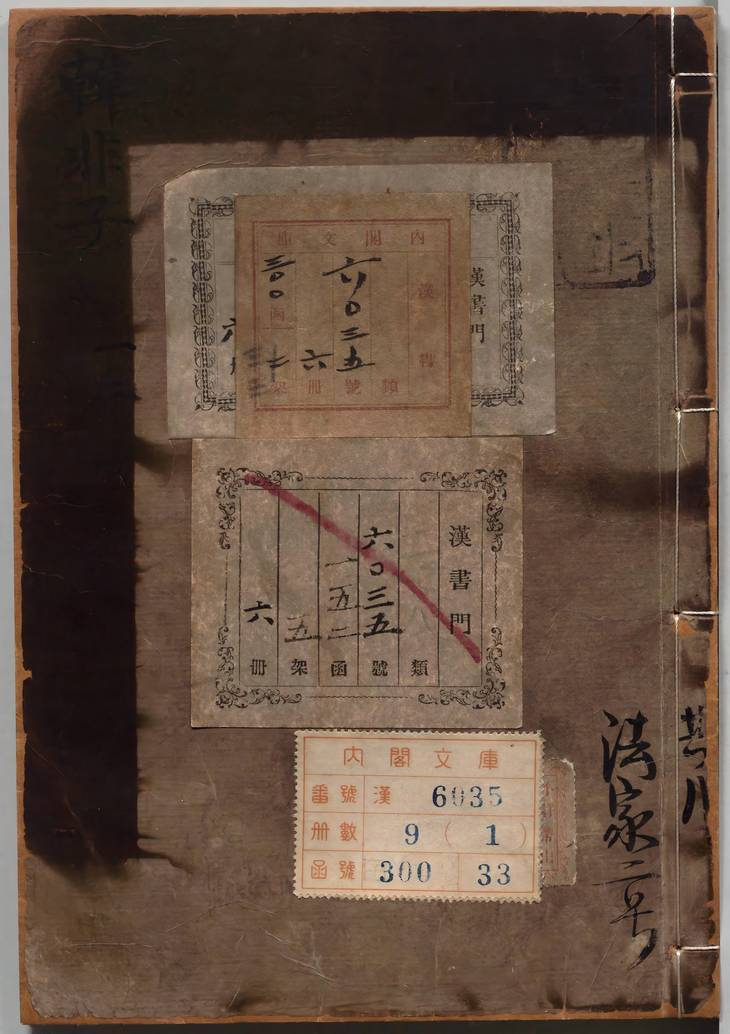 韓非子
一
漢書門
六
內閣文庫
漢書
六〇三五
六
三〇〇
函
類號冊架
漢書門
類
六〇三五號
一五二函
五架
六冊
內閣文庫
番號 漢 6035
冊數 9 (1)
函號 300 33
法家二号